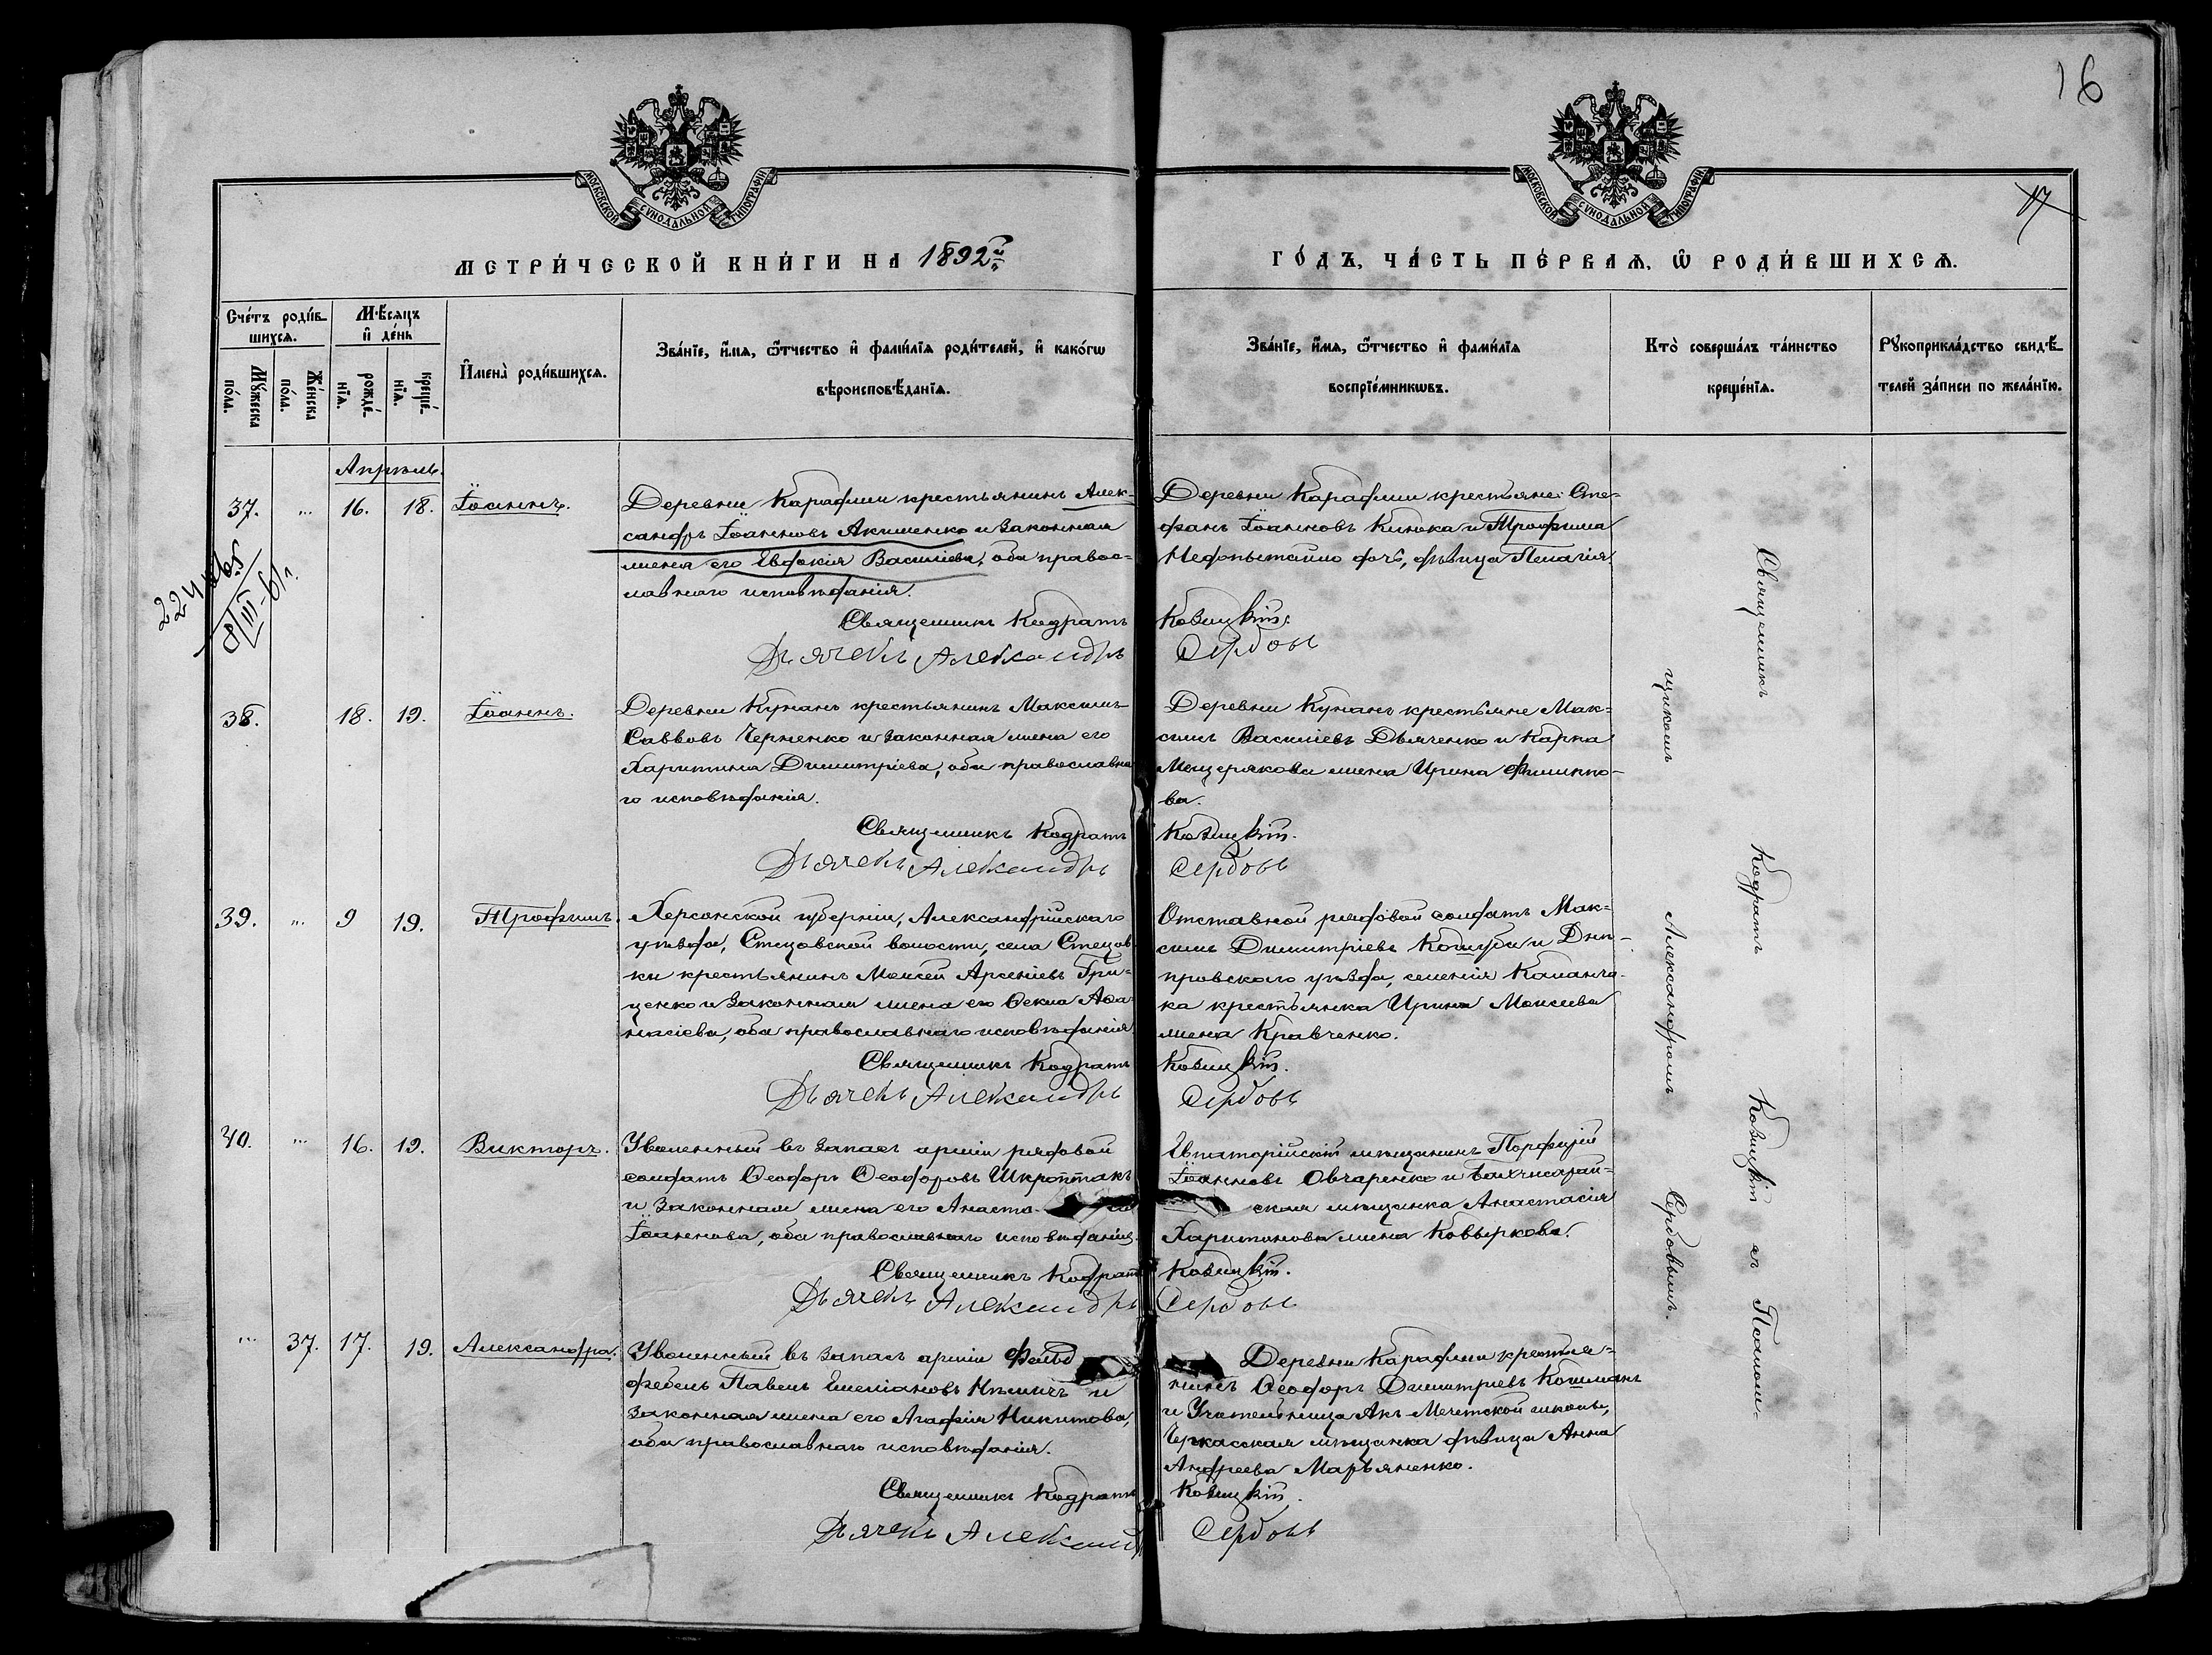 16
17
МОСКОВСКОЙ СѴНОДАЛЬНОЙ ТИПОГРАФІИ
МОСКОВСКОЙ СѴНОДАЛЬНОЙ ТИПОГРАФІИ
МЕТРИ́ЧЕСКОЙ КНИ́ГИ НА 1892й
ГО́ДЪ, ЧА́СТЬ ПЕ́РВАѦ, Ѿ РОДИ́ВШИХСѦ.
Сче́тъ роди́в-
шихсѧ.
Мꙋ́жеска
по́ла.
Же́нска
по́ла.
Мѣ́сѧцъ
и҆ де́нь
рожде́-
нїѧ.
креще́-
нїѧ.
И҆мена̀ роди́вшихсѧ.
Зва́нїе, и҆́мѧ, ѻ҆́тчество и҆ фами́лїѧ роди́телей, и҆ како́гѡ
вѣроисповѣ́данїѧ.
Зва́нїе, и҆́мѧ, ѻ҆́тчество и҆ фами́лїѧ
воспрїе́мникѡвъ.
Кто̀ соверша́лъ та́инство
креще́нїѧ.
Рꙋкоприкла́дство свидѣ́-
телей за́писи по жела́нїю.
Апрѣль.
37. " 16. 18. Іоаннъ.
Деревни Караджи крестьянинъ Алек-
сандръ Іоанновъ Акименко и законная
жена его Евдокія Василіева, оба правос-
лавнаго исповѣданія.
Священникъ Кодратъ
Дьячекъ Александръ
Деревни Караджи крестьяне: Сте-
фанъ Іоанновъ Кинока и Трофима
Недопытайло дочь, дѣвица Пелагія.
Ковицкій.
Сербовъ
38. 18. 19. Іоаннъ.
Деревни Кунанъ крестьянинъ Максимъ
Саввовъ Черненко и законная жена его
Харитина Димитріева, оба православна-
го исповѣданія.
Священникъ Кодратъ
Дьячекъ Александръ
Деревни Кунанъ крестьяне Мак-
симъ Василіевъ Дьяченко и Карпа
Мещерякова жена Ирина Филиппо-
ва.
Ковицкій.
Сербовъ
39. " 9 19. Трофимъ.
Херсонской губерніи, Александрійскаго
уѣзда, Стецовской волости, села Стецов-
ки крестьянинъ Моисей Арсеніевъ Гри-
ценко и законная жена его Ѳекла Аѳа-
насіева, оба православнаго исповѣданія
Священникъ Кодратъ
Дьячекъ Александръ
Отставной рядовой солдатъ Мак-
симъ Димитріевъ Кошуба и Днѣ-
провскаго уѣзда, селенія Каланча-
ка крестьянка Ирина Моисеева
жена Кравченко.
Ковицкій.
Сербовъ
40. " 16. 19. Викторъ.
Уволенный въ запасъ арміи рядовой
солдатъ Ѳеодоръ Ѳеодоровъ Шкроптакъ
и законная жена его Анаста-
Іоаннова, оба православнаго исповѣданія.
Священникъ Кодратъ
Дьячекъ Александръ
Евпаторійскій мѣщанинъ Порфирій
Іоанновъ Овчаренко и Бахчисарай-
ская мѣщанка Анастасія
Харитонова жена Ковыркова.
Ковицкій.
Сербовъ
" 37. 17. 19. Александра.
Уволенный въ запасъ арміи Фельд
фебель Павелъ Емеліановъ Нѣмичъ и
законная жена его Агафія Никитова,
оба православнаго исповѣданія.
Священникъ Кодратъ
Дьячекъ Александ
Деревни Караджи крестья-
нинъ Ѳеодоръ Димитріевъ Кошманъ
и Учительница Акъ-Мечетской школы,
Черкасская мѣщанка дѣвица Анна
Андреева Марьяненко.
Ковицкій.
Сербовъ
Священникъ Кодратъ Ковицкій съ Псалом-
щикомъ Александромъ Сербовымъ.